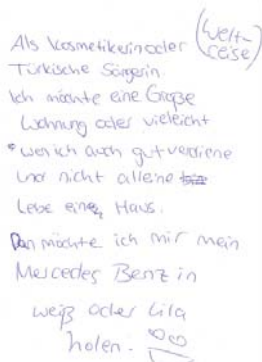 (Welt-
reise)
Als Kosmetikerin oder
Türkische Sängerin.
Ich möchte eine Große
Wohnung oder vieleicht
wen ich auch gut verdiene
und nicht alleine
Lebe einen Haus.
Dan möchte ich mir mein
Mercedes Benz in
weiß oder Lila
holen.